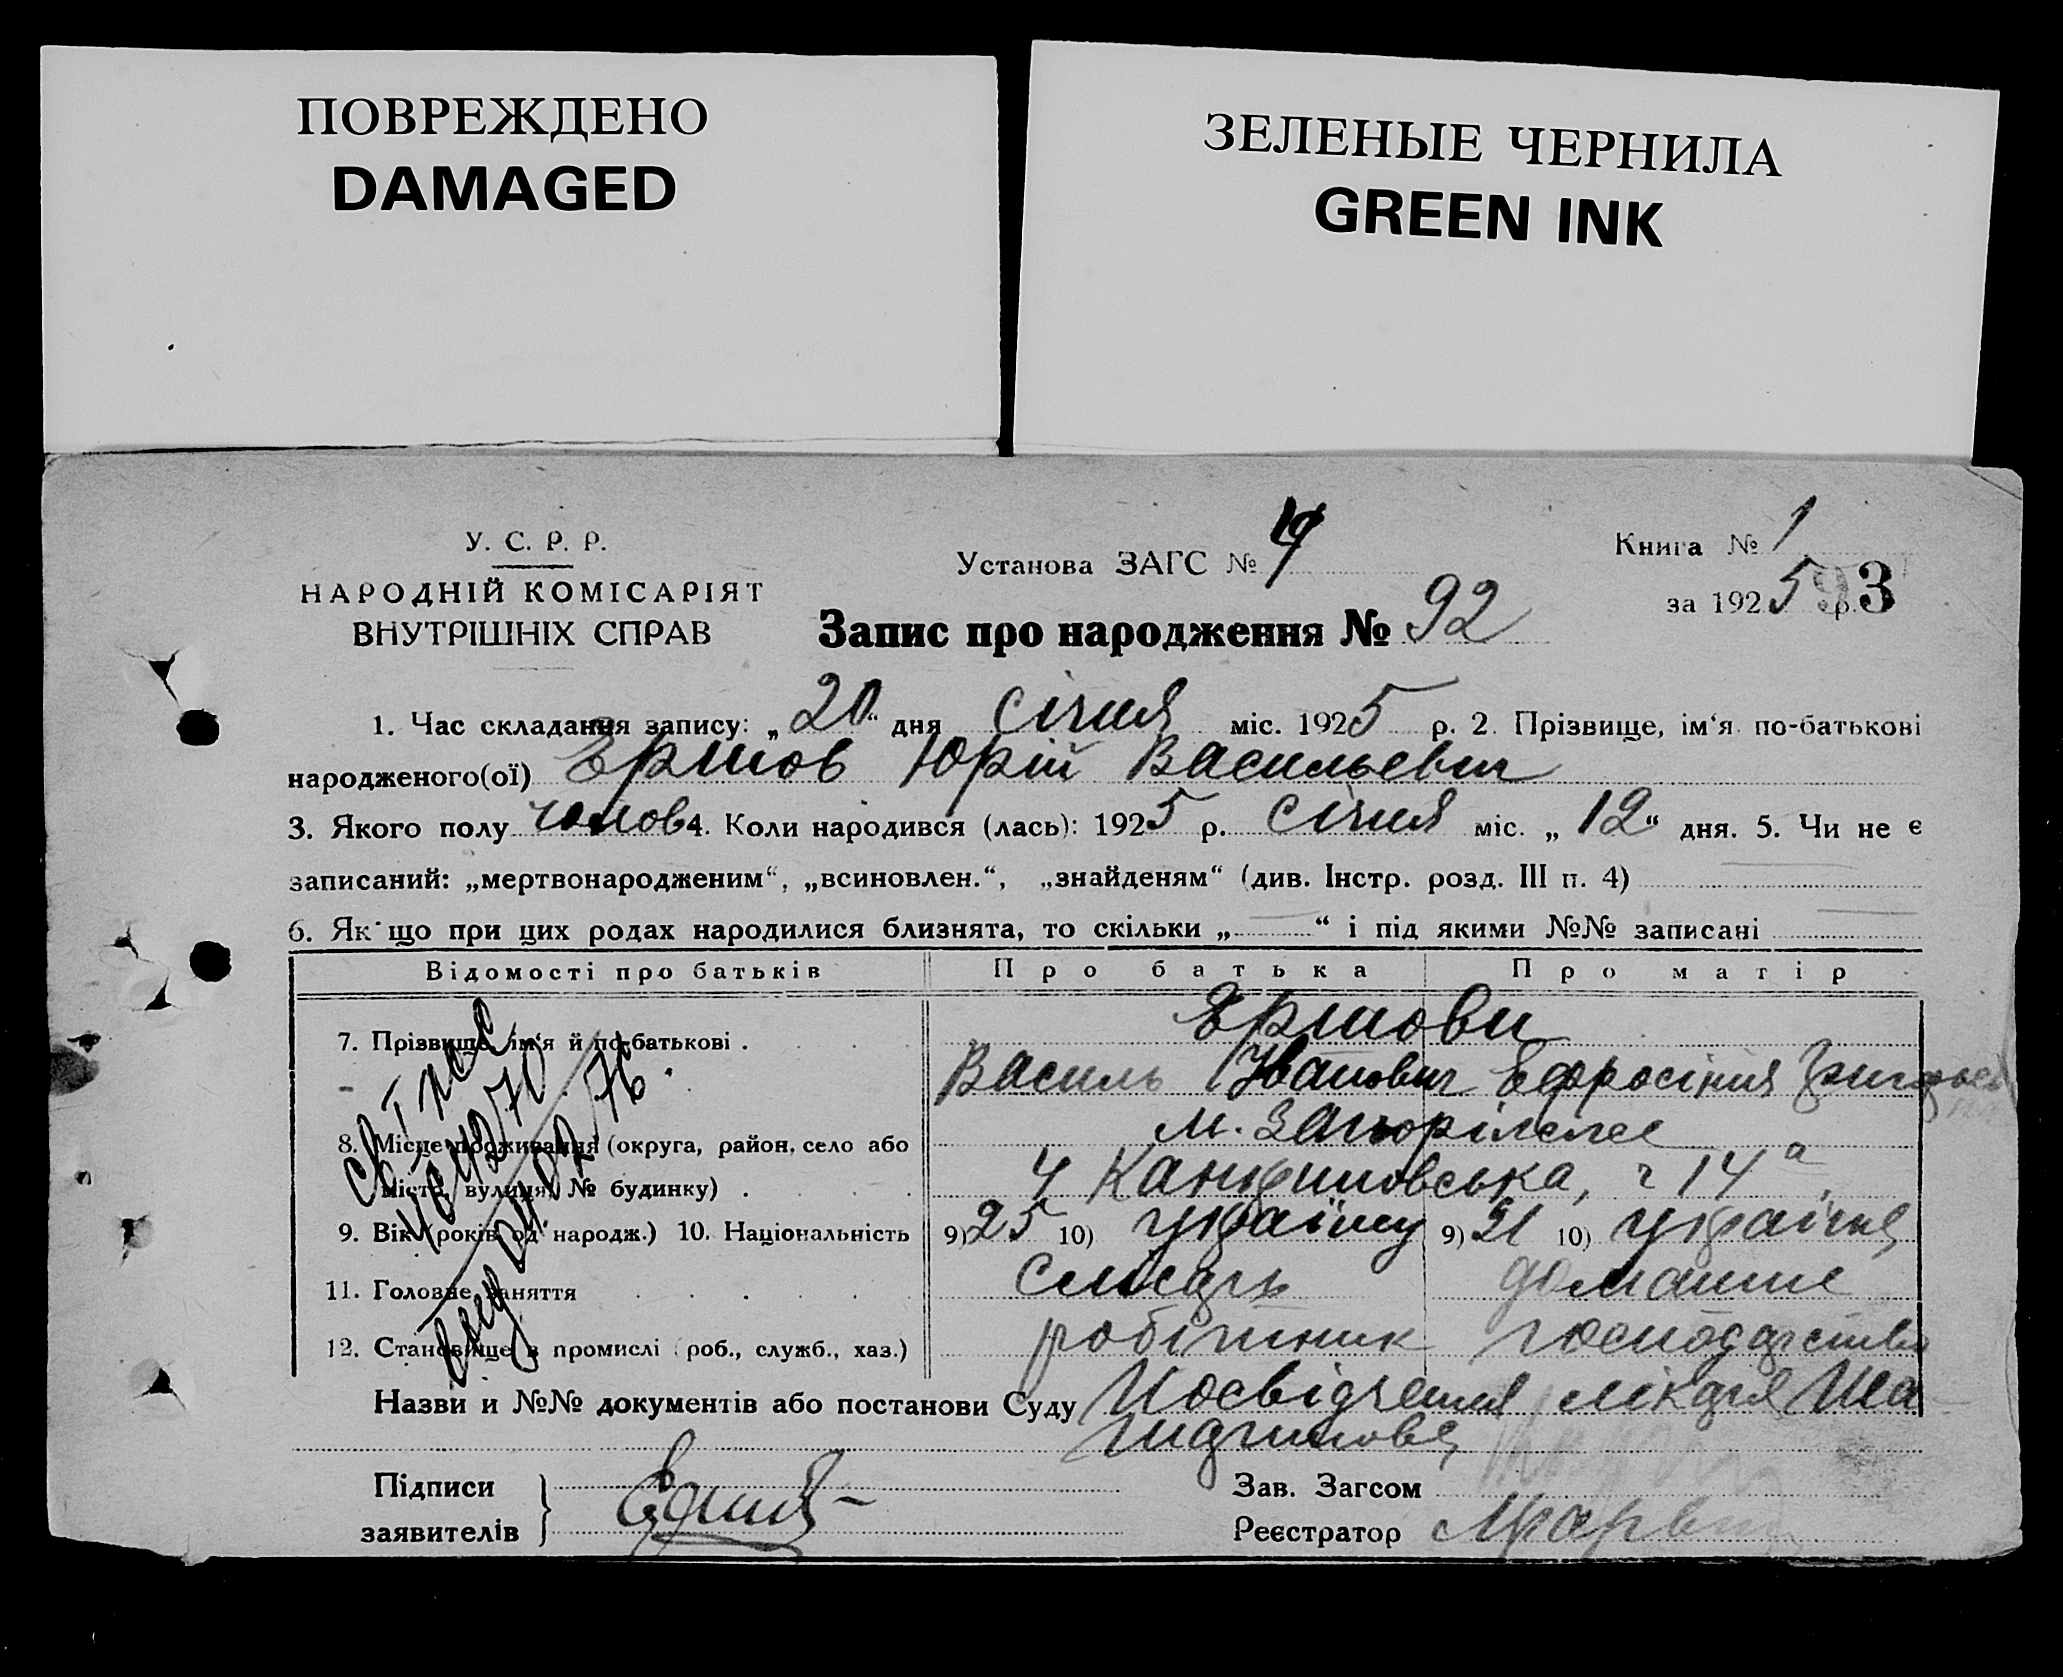 ПОВРЕЖДЕНО
DAMAGED
ЗЕЛЕНЫЕ ЧЕРНИЛА
GREEN INK
У. С. Р. Р.
НАРОДНІЙ КОМІСАРІЯТ
ВНУТРІШНІХ СПРАВ
Установа ЗАГС №
Книга № 1
за 1925 р. 93
Запис про народження № 92
1. Час складання запису: „20“ дня січня міс. 1925 р. 2. Прізвище, ім‘я по-батькові
народженого(ої) Ершов Юрій Васильевич
3. Якого полу чолов 4. Коли народився (лась): 1925 р. січня міс. „12“ дня. 5. Чи не є
записаний: „мертвонародженим“, „всиновлен.“, „знайденям“ (див. Інстр. розд. III п. 4)
6. Як що при цих родах народилися близнята, то скільки „ “ і під якими №№ записані
Відомості про батьків Про батька Про матір
Ершови
7. Прізвище, ім‘я й по-батькові . Василь Іванович Ефросінія
8. Місце проживання (округа, район, село або м.
місто, вулиця, № будинку) . 14а
9. Вік (років од народж.) 10. Національність 9) 25 10) україну 9) 21 10) україне
11. Головне заняття Слюсарь домашнє
12. Становище в промислі (роб., служб., хаз.) робітник господарство
Назви и №№ документів або постанови Суду Посвідчення лікаря
Підписи
заявителів
Зав. Загсом
Реєстратор